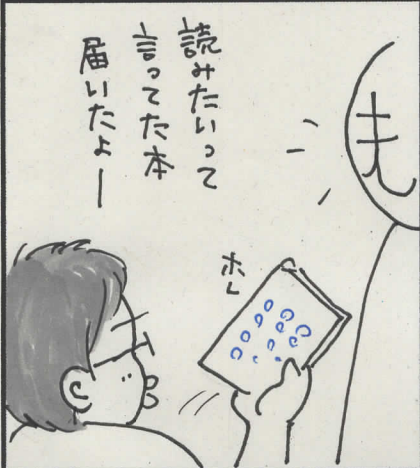 読みたいって
言ってた本
届いたよー
夫
ホレ